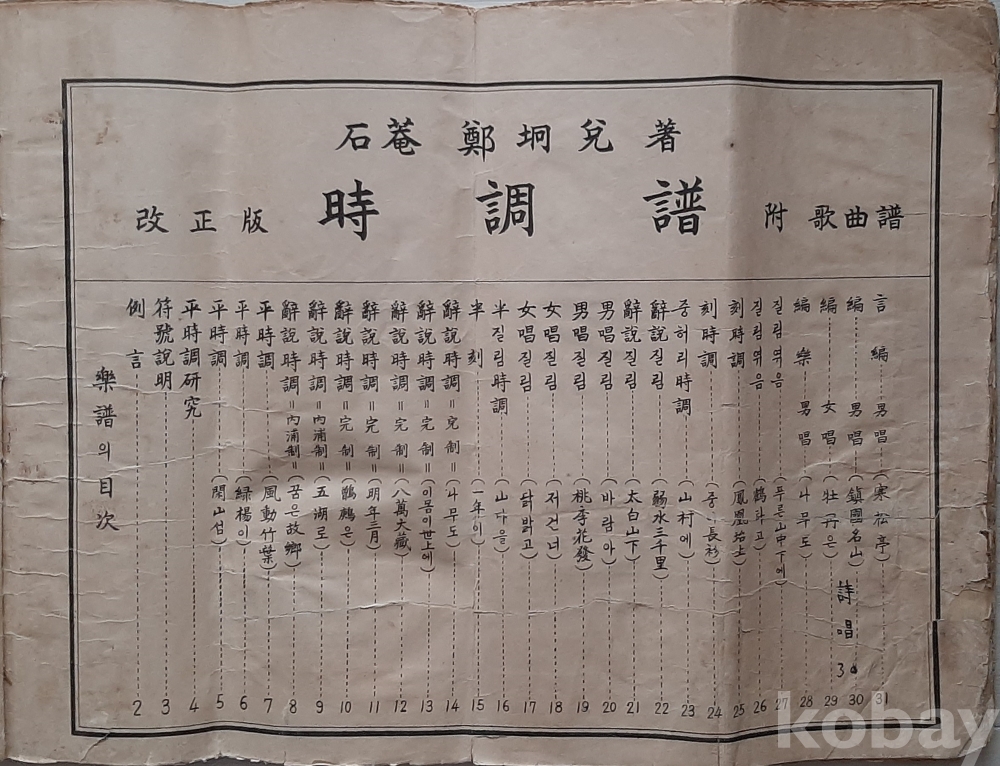 石菴 鄭坰兌 著
改正版 時調譜 附 歌曲譜
樂譜의目次
例言 2
符號說明 3
平時調研究 4
平時調 (閑山섬) 5
平時調 (綠楊이) 6
平時調 (風動竹葉) 7
辭說時調 =內浦制= (꿈은故鄕) 8
辭說時調 =內浦制= (五湖로) 9
辭說時調 =完制= (鶺鶊은) 10
辭說時調 =完制= (明年三月) 11
辭說時調 =完制= (八萬大藏) 12
辭說時調 =完制= (이몸이世上에) 13
辭說時調 =完制= (나무도) 14
半刻 (一年이) 15
半질림時調 (山다을) 16
女唱질림 (달밝고) 17
女唱질림 (저건너) 18
男唱질림 (桃李花發) 19
男唱질림 (바람아) 20
辭說질림 (太白山下) 21
辭說질림 (弱水三千里) 22
중허리時調 (山村에) 23
刻時調 (중이長衫) 24
刻時調 (鳳凰坮上) 25
질림엮음 (鶴타고) 26
질림엮음 (푸른山中下에) 27
編樂 男唱 (나무도) 28
編 女唱 (牡丹은) 29
編 男唱 (鎭國名山) 30
言編 男唱 (寒松亭) 31
詩唱 30
kobay